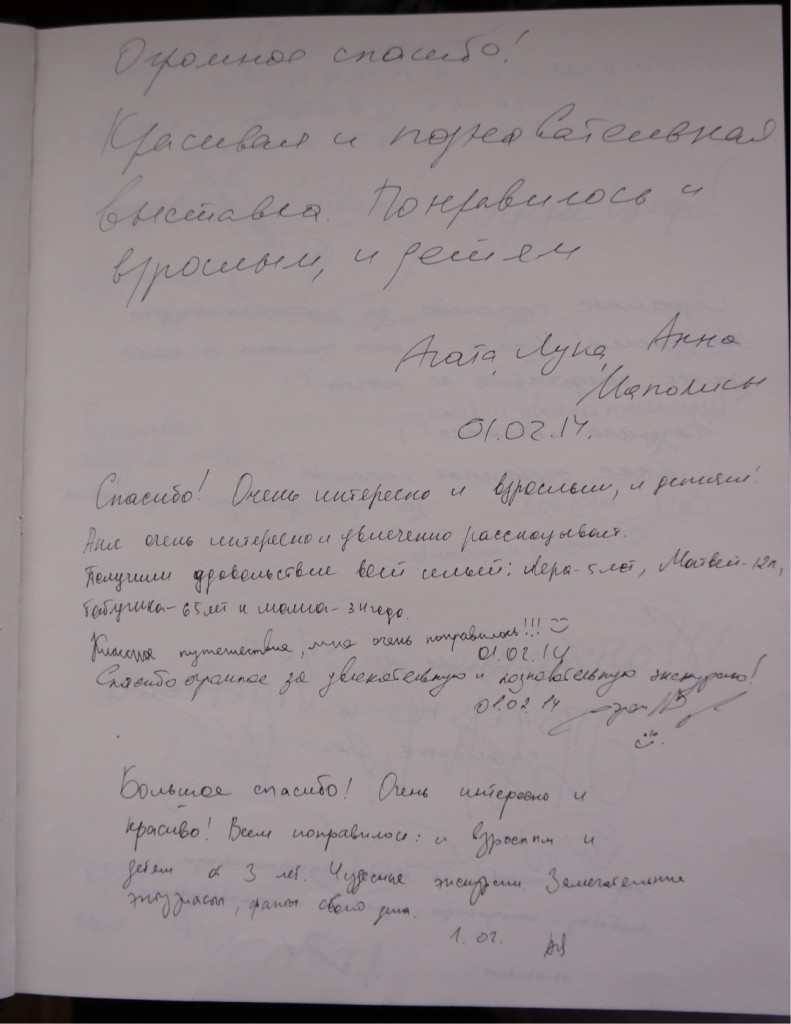 Огромное спасибо!
Красивая и познавательная
выставка. Понравилось и
взрослым, и детям
Агата, Лука, Анна
01.02.14.
Спасибо! Очень интересно и взрослым, и детям!
Аня очень интересно и увлеченно рассказывает.
Получили удовольствие всей семьей: Лера - 5 лет, Матвей - 12л,
бабушка - 65 лет и мама - 34 года.
Классное путешествие, мне очень понравилось!!!
01.02.14
Спасибо огромное за увлекательную и познавательную экскурсию!
01.02.14
Большое спасибо! Очень интересно и
красиво! Всем понравилось: и взрослым и
детям с 3 лет. Чудесные экскурсии. Замечательные
энтузиасты, фаны своего дела.
1.02.